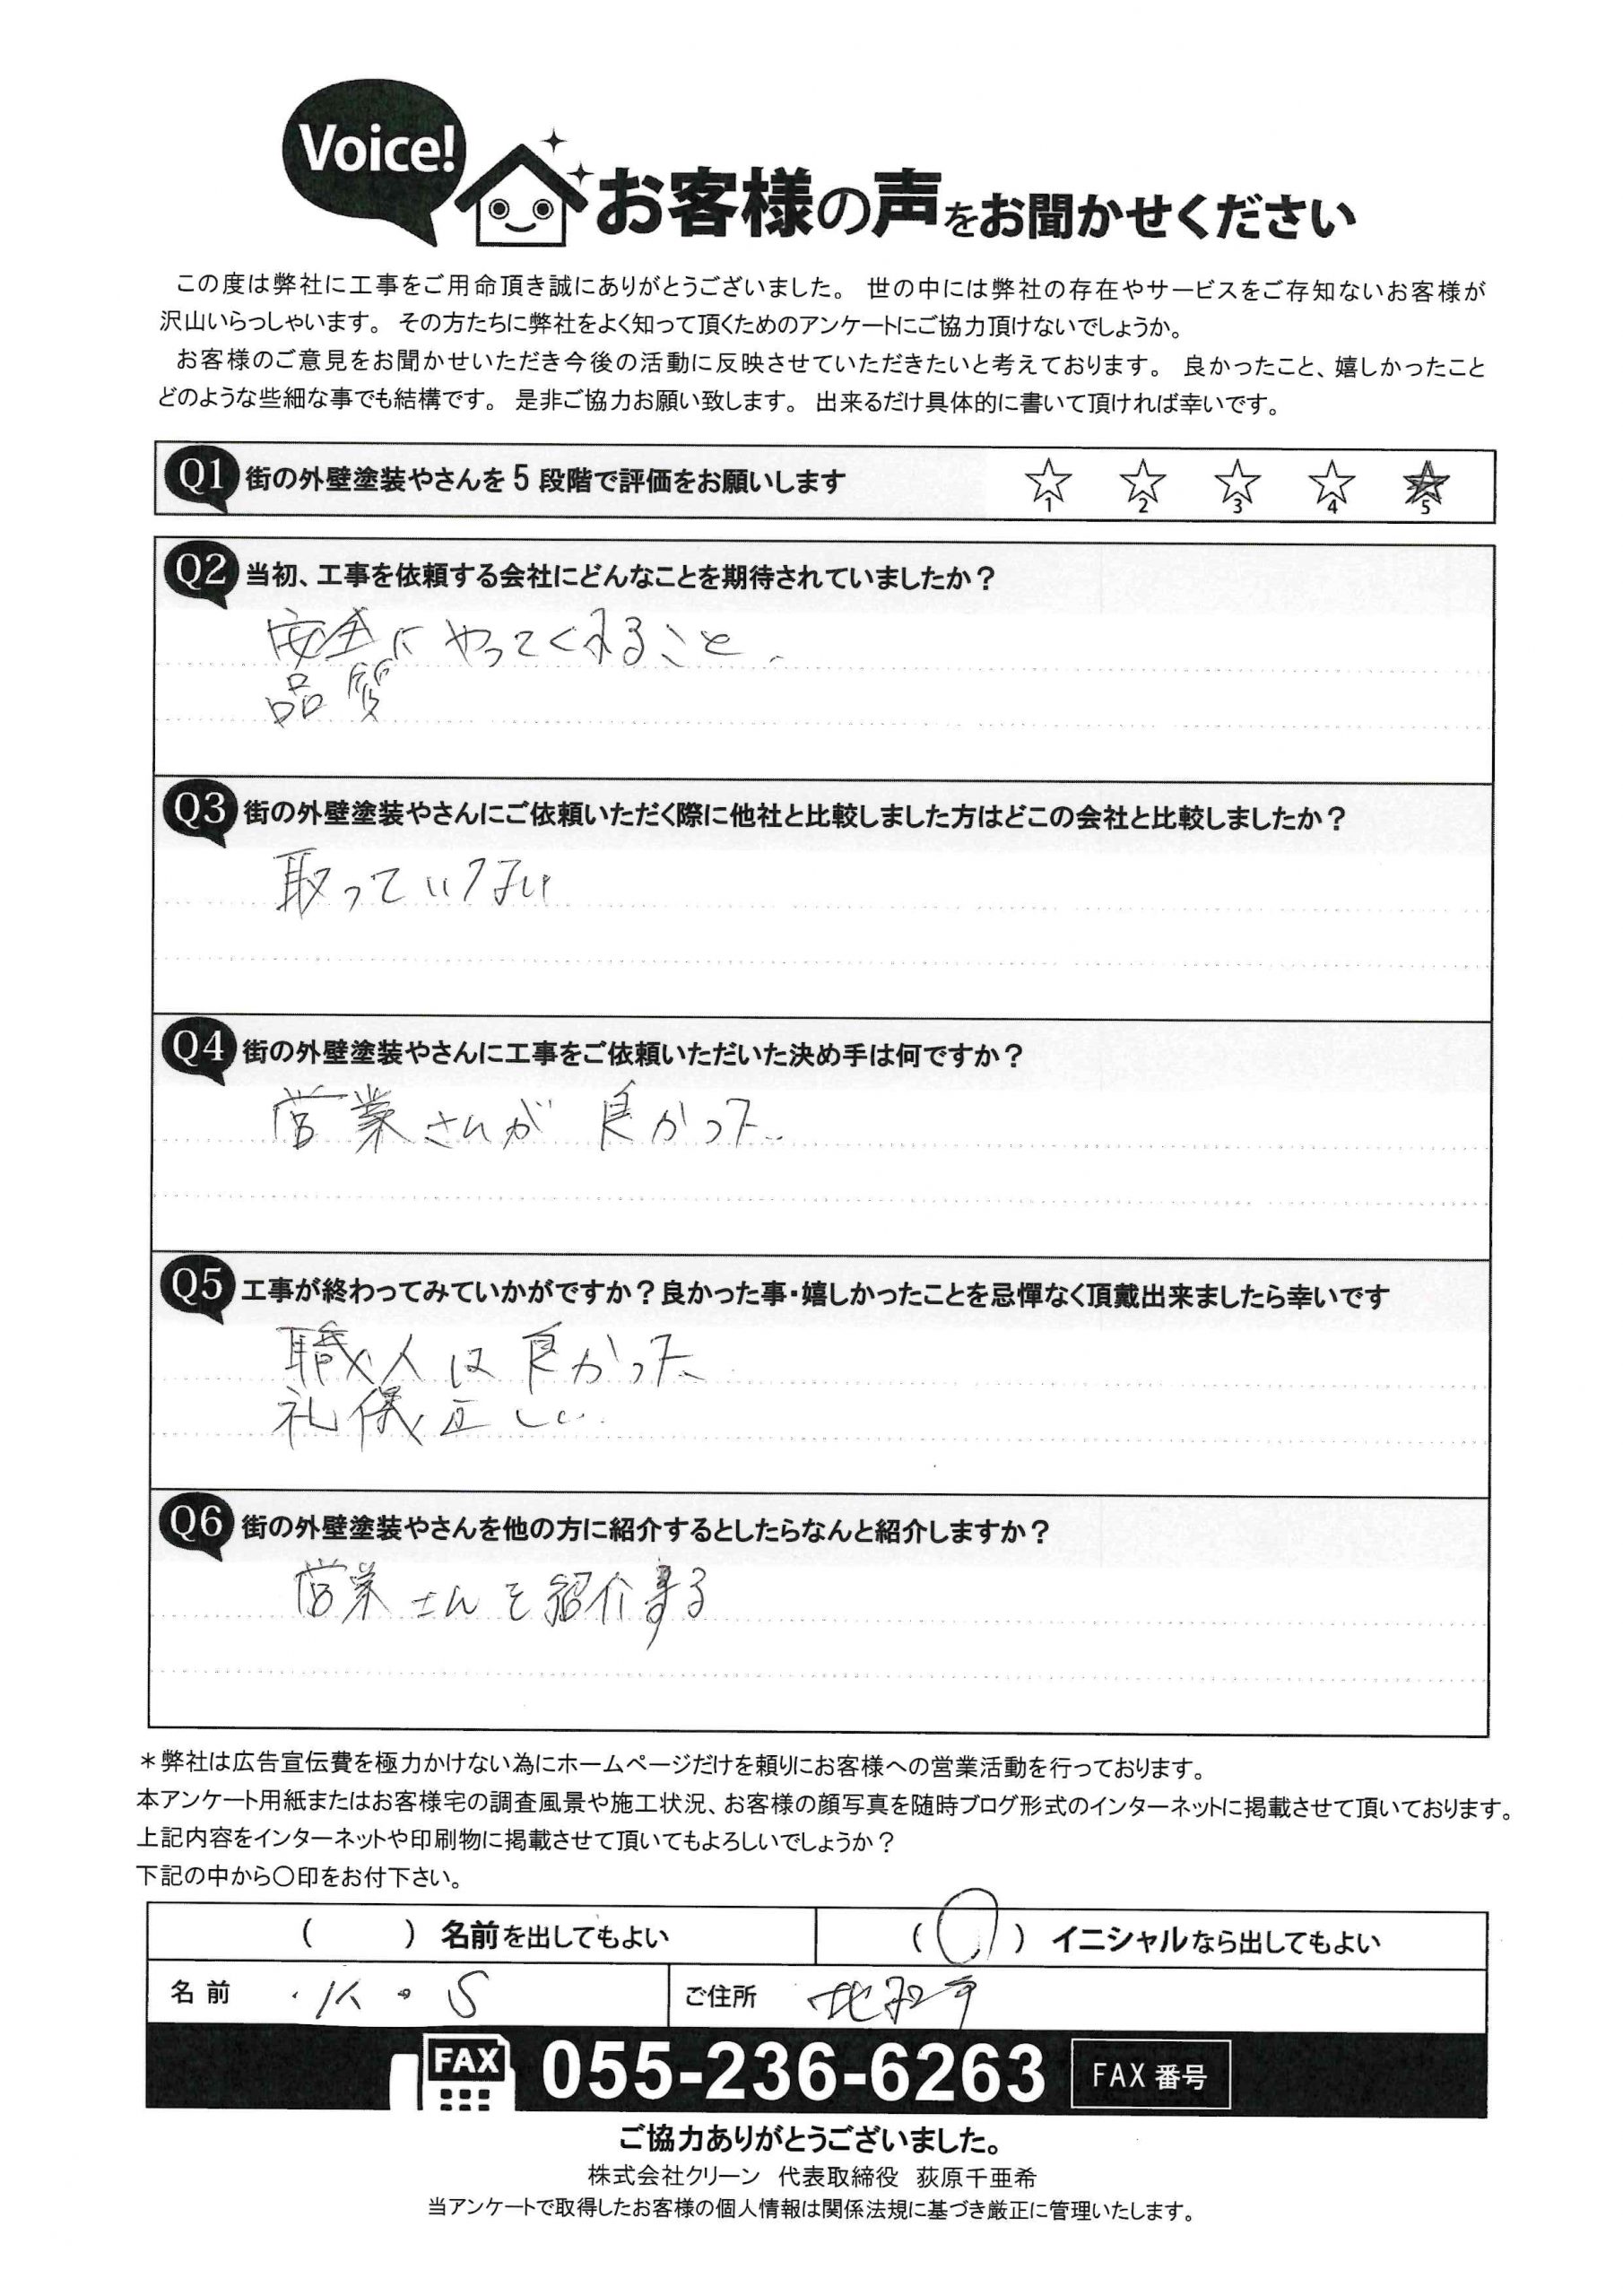 Voice!
お客様の声をお聞かせください
この度は弊社に工事をご用命頂き誠にありがとうございました。 世の中には弊社の存在やサービスをご存知ないお客様が
沢山いらっしゃいます。 その方たちに弊社をよく知って頂くためのアンケートにご協力頂けないでしょうか。
お客様のご意見をお聞かせいただき今後の活動に反映させていただきたいと考えております。 良かったこと、嬉しかったこと
どのような些細な事でも結構です。 是非ご協力お願い致します。 出来るだけ具体的に書いて頂ければ幸いです。
Q1 街の外壁塗装やさんを5段階で評価をお願いします ☆1 ☆2 ☆3 ☆4 ★5
Q2 当初、工事を依頼する会社にどんなことを期待されていましたか？
安全にやってくれること、
品質
Q3 街の外壁塗装やさんにご依頼いただく際に他社と比較しました方はどこの会社と比較しましたか？
取っていない
Q4 街の外壁塗装やさんに工事をご依頼いただいた決め手は何ですか？
営業さんが 良かった
Q5 工事が終わってみていかがですか？良かった事・嬉しかったことを忌憚なく頂戴出来ましたら幸いです
職人は良かった
礼儀正しい
Q6 街の外壁塗装やさんを他の方に紹介するとしたらなんと紹介しますか？
営業さんを紹介する
＊弊社は広告宣伝費を極力かけない為にホームページだけを頼りにお客様への営業活動を行っております。
本アンケート用紙またはお客様宅の調査風景や施工状況、お客様の顔写真を随時ブログ形式のインターネットに掲載させて頂いております。
上記内容をインターネットや印刷物に掲載させて頂いてもよろしいでしょうか？
下記の中から〇印をお付下さい。
（　　） 名前を出してもよい （〇） イニシャルなら出してもよい
名前 K・S ご住所
FAX 055-236-6263 FAX 番号
ご協力ありがとうございました。
株式会社クリーン 代表取締役 荻原千亜希
当アンケートで取得したお客様の個人情報は関係法規に基づき厳正に管理いたします。